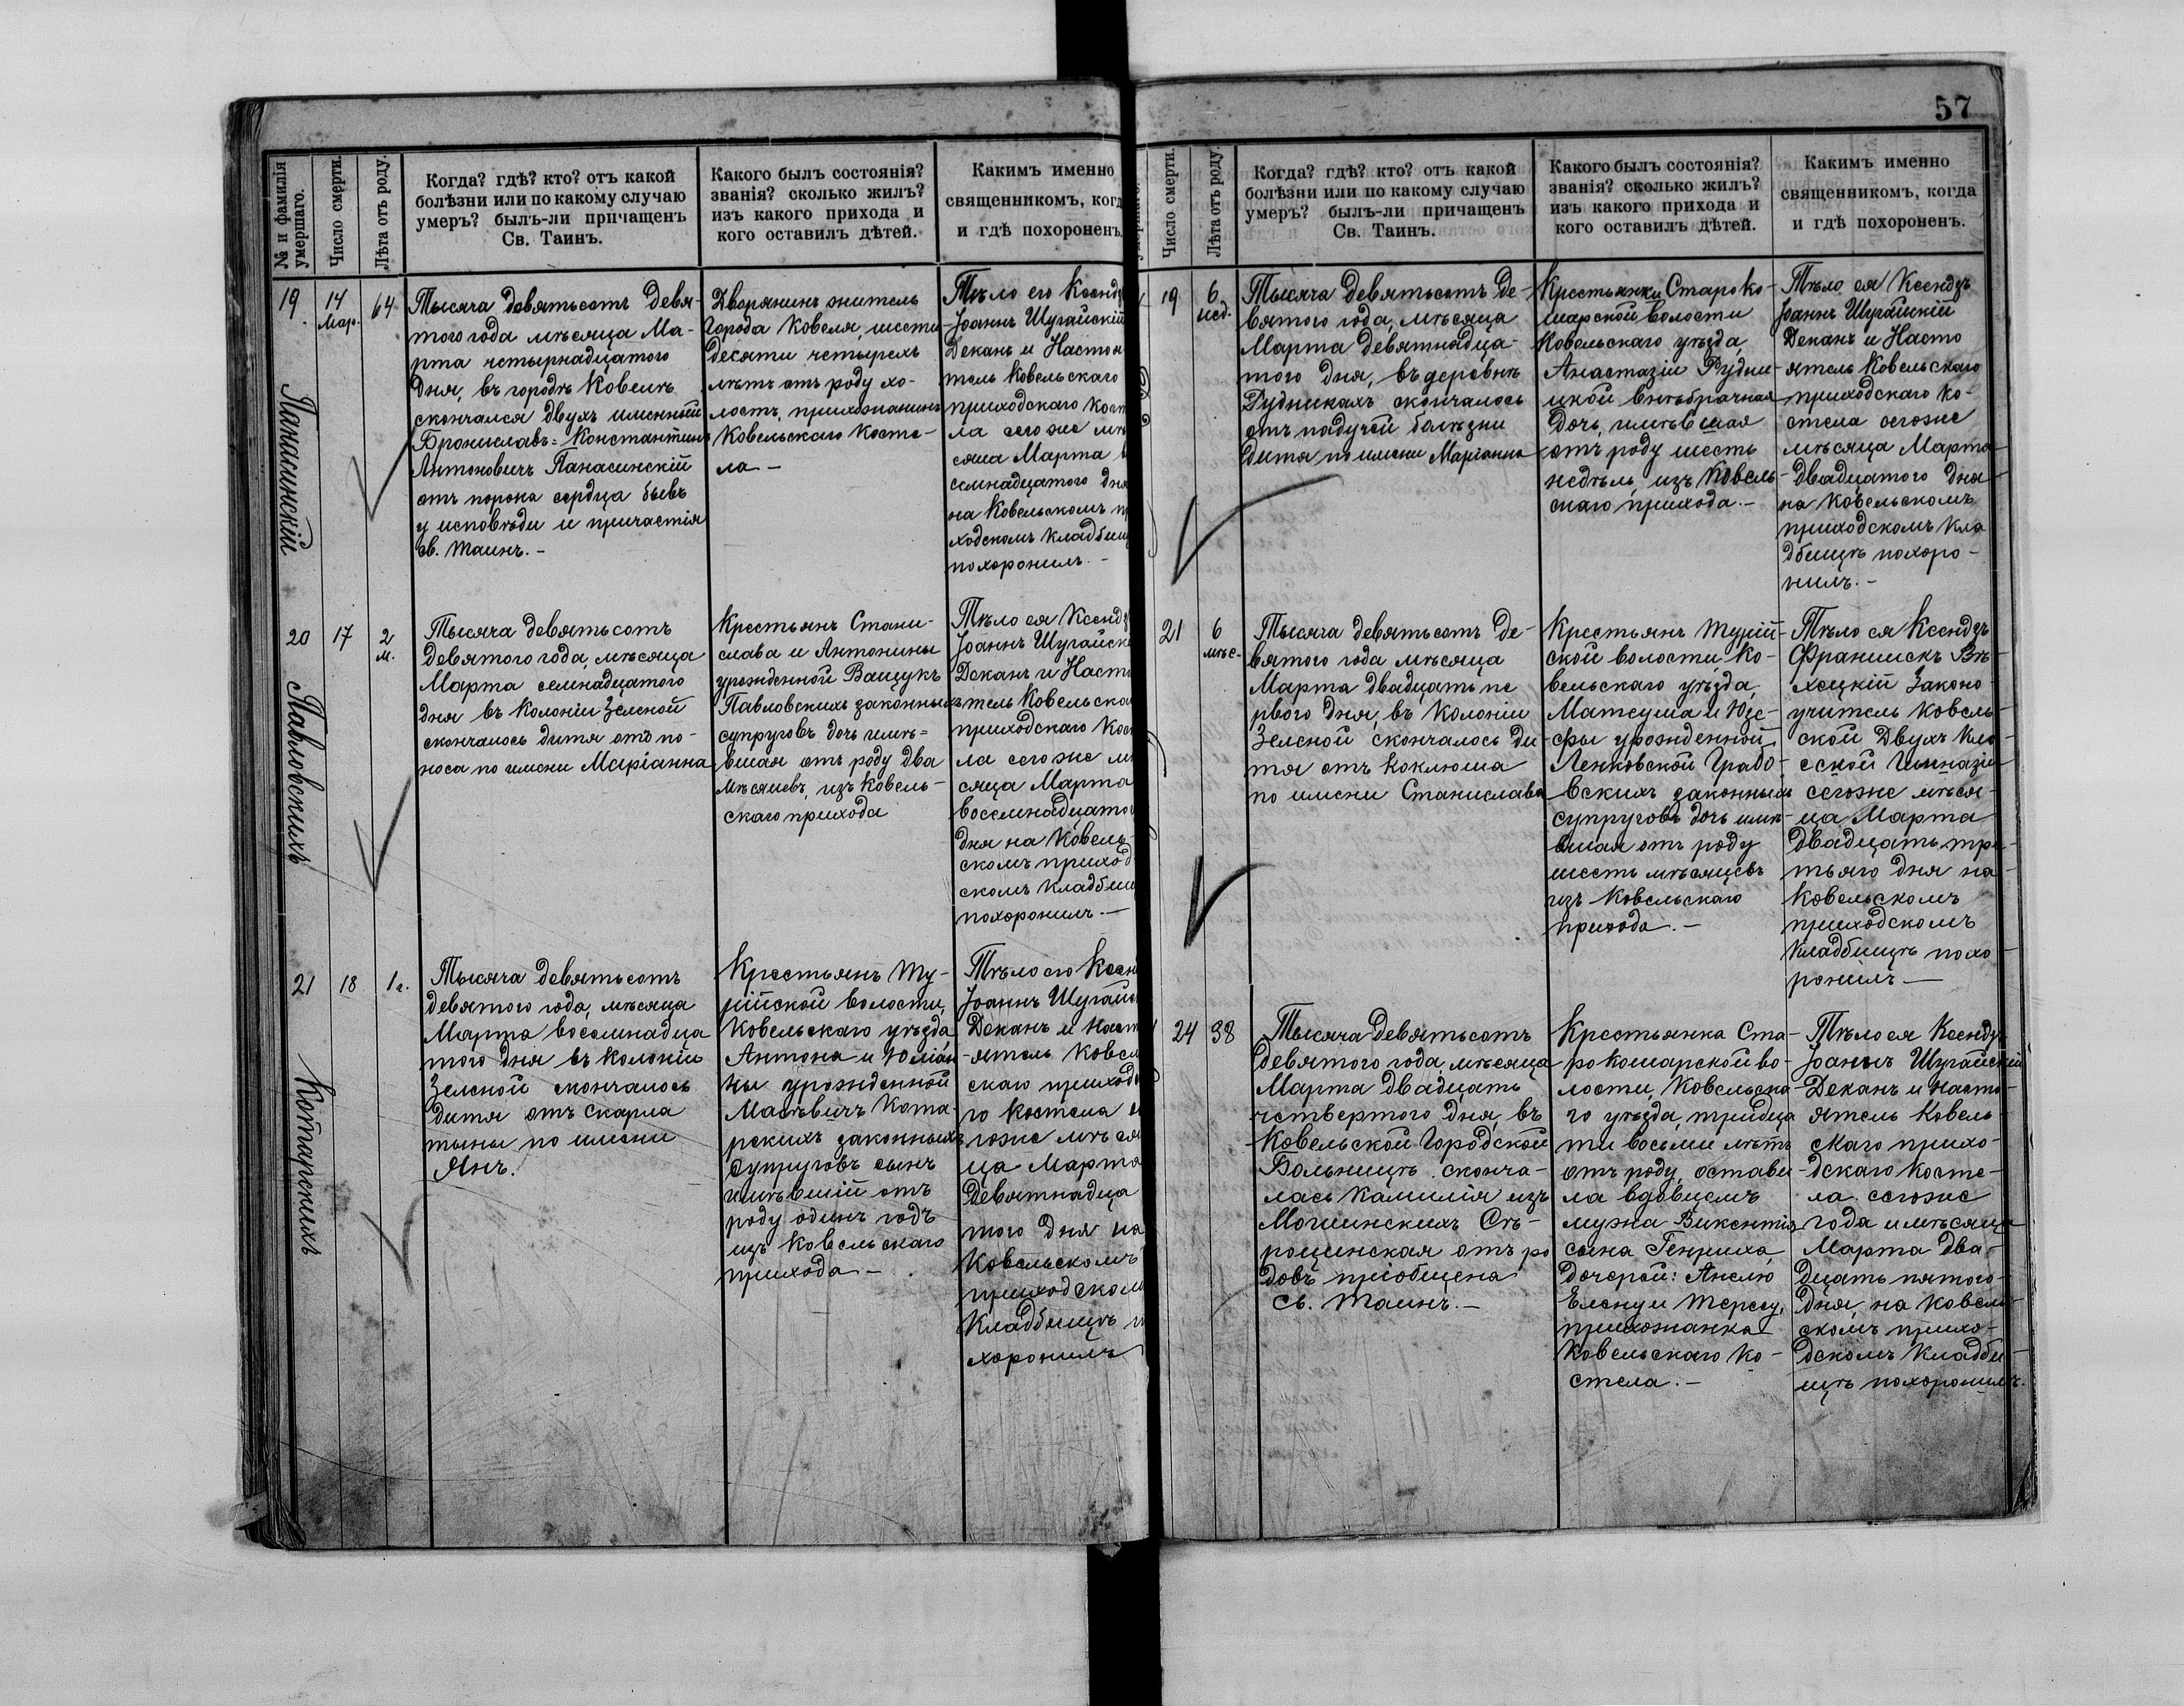 № и фамилія
умершаго.
Число смерти.
Лѣта отъ роду.
Когда? гдѣ? кто? отъ какой
болѣзни или по какому случаю
умеръ? былъ-ли причащенъ
Св. Таинъ.
Какого былъ состоянія?
званія? сколько жилъ?
изъ какого прихода и
кого оставилъ дѣтей.
Каким именно
священникомъ, когд
и гдѣ похороненъ
19
Панасинскій
14
Мар.
64
Тысяча девятьсотъ девя-
того года мѣсяца Ма-
рта четырнадцатого
дня, въ городѣ Ковелѣ
скончался двухъ именной
Брониславъ=Константинъ
Антоновичъ Панасинскій
отъ порока сердца бывъ
у исповѣди и причастія
св. таинъ.-
Дворянинъ житель
города Ковеля, шести
десяти четырехъ
лѣтъ отъ роду хо-
лостъ, прихожанинъ
Ковельскаго косте-
ла-
Тѣло его Ксендз
Іоаннъ Шугайскій
Деканъ и Настоя
тель Ковельскаго
приходскаго кост
ла сегоже мѣ
сяца Марта
семнадцатого дня
на Ковельскомъ п
ходскомъ кладбищ
похоронилъ.-
20
Павловскихъ
17
2
м.
Тысяча девятьсотъ
девятого года, мѣсяца
Марта семнадцатого
дня въ колоніи Зеленой
скончалось дитя отъ по-
носа по имени Маріанна
Крестьянъ Стани-
слава и Антонины
урожденной Ващукъ
Павловскихъ законныхъ
супруговъ дочь имѣ=
вшая отъ роду два
мѣсяцевъ, изъ Ковель-
скаго прихода
Тѣло ея Ксендз
Іоаннъ Шугайск
Деканъ и Насто
тель Ковельска
приходскаго кос
ла сегоже м
сяца Марта
восемнадцато
дня на Ковель
скомъ приход
скомъ кладбищ
похоронилъ.-
21
Котарскихъ
18
1 г.
Тысяча девятьсотъ
девятого года, мѣсяца
Марта восемнадца
того дня въ колоніи
Зеленой скончалось
дитя отъ скарла
тыны по имени
Янъ.
Крестьянъ Ту-
рійской волости,
Ковельскаго уѣзда
Антона и Юліан
ны урожденной
Матѣвичъ Кота-
рскихъ законныхъ
супруговъ сынъ
имѣвшій отъ
роду одинъ годъ
изъ Ковельскаго
прихода-
Тѣло его Ксен
Іоаннъ Шугайс
Деканъ и Наст
ятель Ковел
скаго приход
го костела
гоже мѣся
ца Марта
девятнадца
того дня на
Ковельскомъ
приходском
кладбищѣ п
хоронилъ
57
Число смерти.
Лѣта отъ роду.
Когда? гдѣ? кто? отъ какой
болѣзни или по какому случаю
умеръ? былъ-ли причащенъ
Св. Таинъ.
Какого былъ состоянія?
званія? сколько жилъ?
изъ какого прихода и
кого оставилъ дѣтей.
Какимъ именно
священникомъ, когда
и гдѣ похороненъ.
19
6
нед.
Тысяча девятьсотъ де-
вятого года, мѣсяца
Марта девятнадца-
того дня, въ деревнѣ
Рудникахъ скончалось
отъ падучей болѣзни
дитя по имени Маріанна
Крестьянки Староко-
шарской волости
Ковельскаго уѣзда,
Анастазіи Рудни-
цкой внѣбрачная
дочь, имѣвшая
отъ роду шесть
недѣль, изъ Ковель-
скаго прихода.-
Тѣло ея Ксендзъ
Іоаннъ Шугайскій
Деканъ и Насто
ятель Ковельскаго
приходскаго ко-
стела сегоже
мѣсяца Марта
двадцатого дня
на Ковельскомъ
приходскомъ кла
дбищѣ похоро-
нилъ.-
21
6
мѣс.
Тысяча девятьсотъ де-
вятого года мѣсяца
Марта двадцать пе
рвого дня, въ колоніи
Зеленой скончалось ди
тя отъ коклюша
по имени Станислава
Крестьянъ Турій-
ской волости Ко-
вельскаго уѣзда,
Матеуша и Юзе-
фы урожденной
Ленковской Градо-
вскихъ законныхъ
супруговъ дочь имѣ-
вшая отъ роду
шесть мѣсяцевъ
изъ Ковельскаго
прихода.-
Тѣло ея Ксендзъ
Францискъ
Законо-
учитель Ковель-
ской двухъ кла-
ссной Гимназіи
сегоже мѣся-
ца Марта
двадцать тре-
тьяго дня на
Ковельскомъ
приходскомъ
кладбищѣ похо
ронилъ-
24
38
Тысяча девятьсотъ
девятого года, мѣсяца
Марта двадцать
четвертого дня, въ
Ковельской Городской
Больницѣ сконча-
лась Камилія изъ
Сѣ-
рощинская отъ ро
довъ пріобщена
св. таинъ.-
Крестьянка Ста-
рокошарской во-
лости, Ковельска-
го уѣзда, тридца
ти восьми лѣтъ
отъ роду, остави
ла вдовцемъ
мужа Викентія
сына Генриха,
дочерей: Анелю
Елену и Тересу,
прихожанка
Ковельскаго ко-
стела.-
Тѣло ея Ксендзъ
Іоаннъ Шугайскій
Деканъ и насто-
ятель Ковель
скаго прихо-
дскаго косте-
ла сегоже
года и мѣсяца
Марта два-
дцать пятого
дня, на Ковель-
скомъ прихо-
дскомъ кладби-
щѣ похоронилъ.